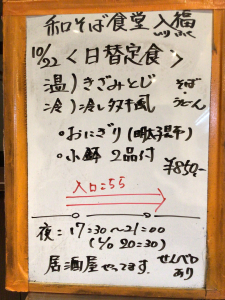 和そば食堂 入福
いりふく
10/22 <日替定食>
温)きざみとじ そば・うどん
冷)冷し
・おにぎり(明太子)
・小鉢 2品付
¥850-
入口=55
夜=17=30〜21=00
(L/O 20=30)
居酒屋やってます. せんべロあり